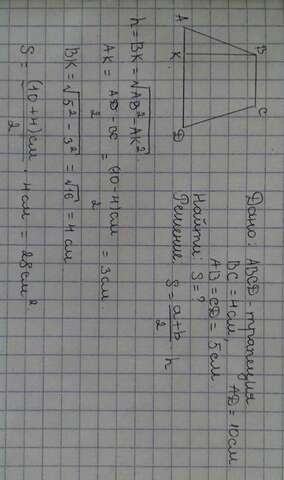 A
B
K
C
D
Дано: ABCD - трапеция
BC = 4 см, AD = 10 см
AB = CD = 5 см
Найти: S = ?
Решение S = a+b/2 h
h = BK = √AB² - AK²
AK = AD - BC / 2 = (10 - 4) см / 2 = 3 см.
BK = √5² - 3² = √6 = 4 см.
S = (10 + 4) см / 2 · 4 см = 28 см²